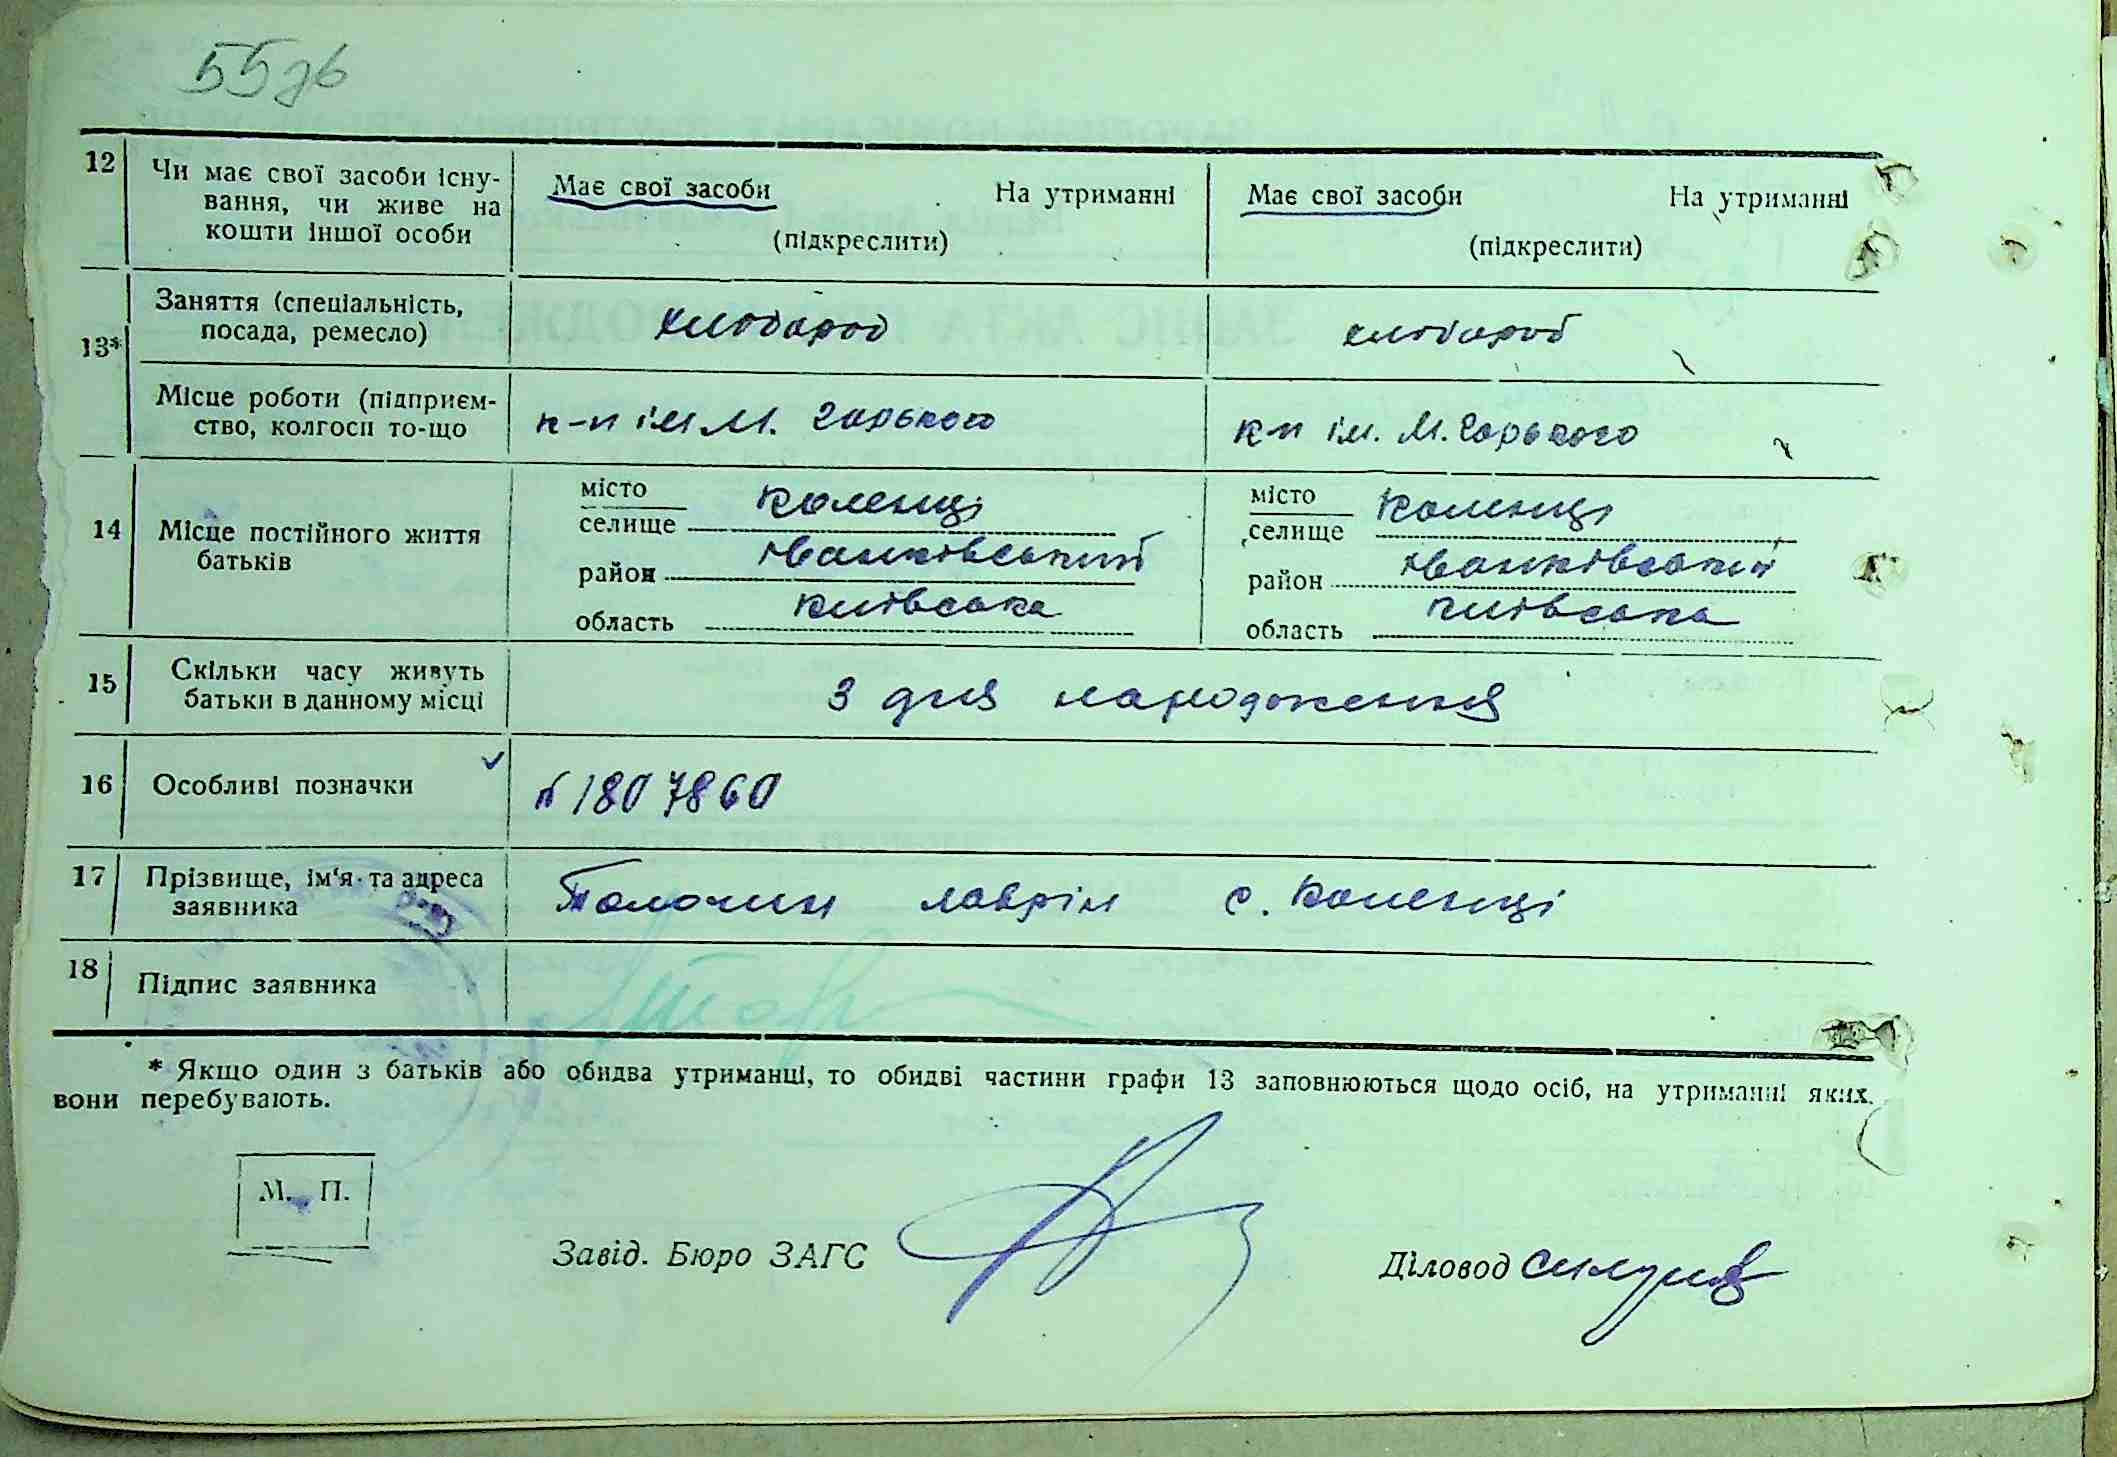 55зв
12 Чи має свої засоби існу-
вання, чи живе на
кошти іншої особи
Має свої засоби На утриманні
(підкреслити)
Має свої засоби На утриманні
(підкреслити)
13* Заняття (спеціальність,
посада, ремесло)
хлібороб
хлібороб
Місце роботи (підприєм-
ство, колгосп то-що
к-п ім М. Горького
к-п ім. М. Горького
14 Місце постійного життя
батьків
місто
селище Коленці
район Іванківський
область Київська
місто
селище Коленці
район Іванківський
область Київська
15 Скільки часу живуть
батьки в данному місці
З дня народження
16 Особливі позначки
№ 1807860
17 Прізвище, ім‘я та адреса
заявника
Толочин Лаврін с. Коленці
18 Підпис заявника
* Якщо один з батьків або обидва утриманці, то обидві частини графи 13 заповнюються щодо осіб, на утриманні яких
вони перебувають.
М. П.
Завід. Бюро ЗАГС
Діловод